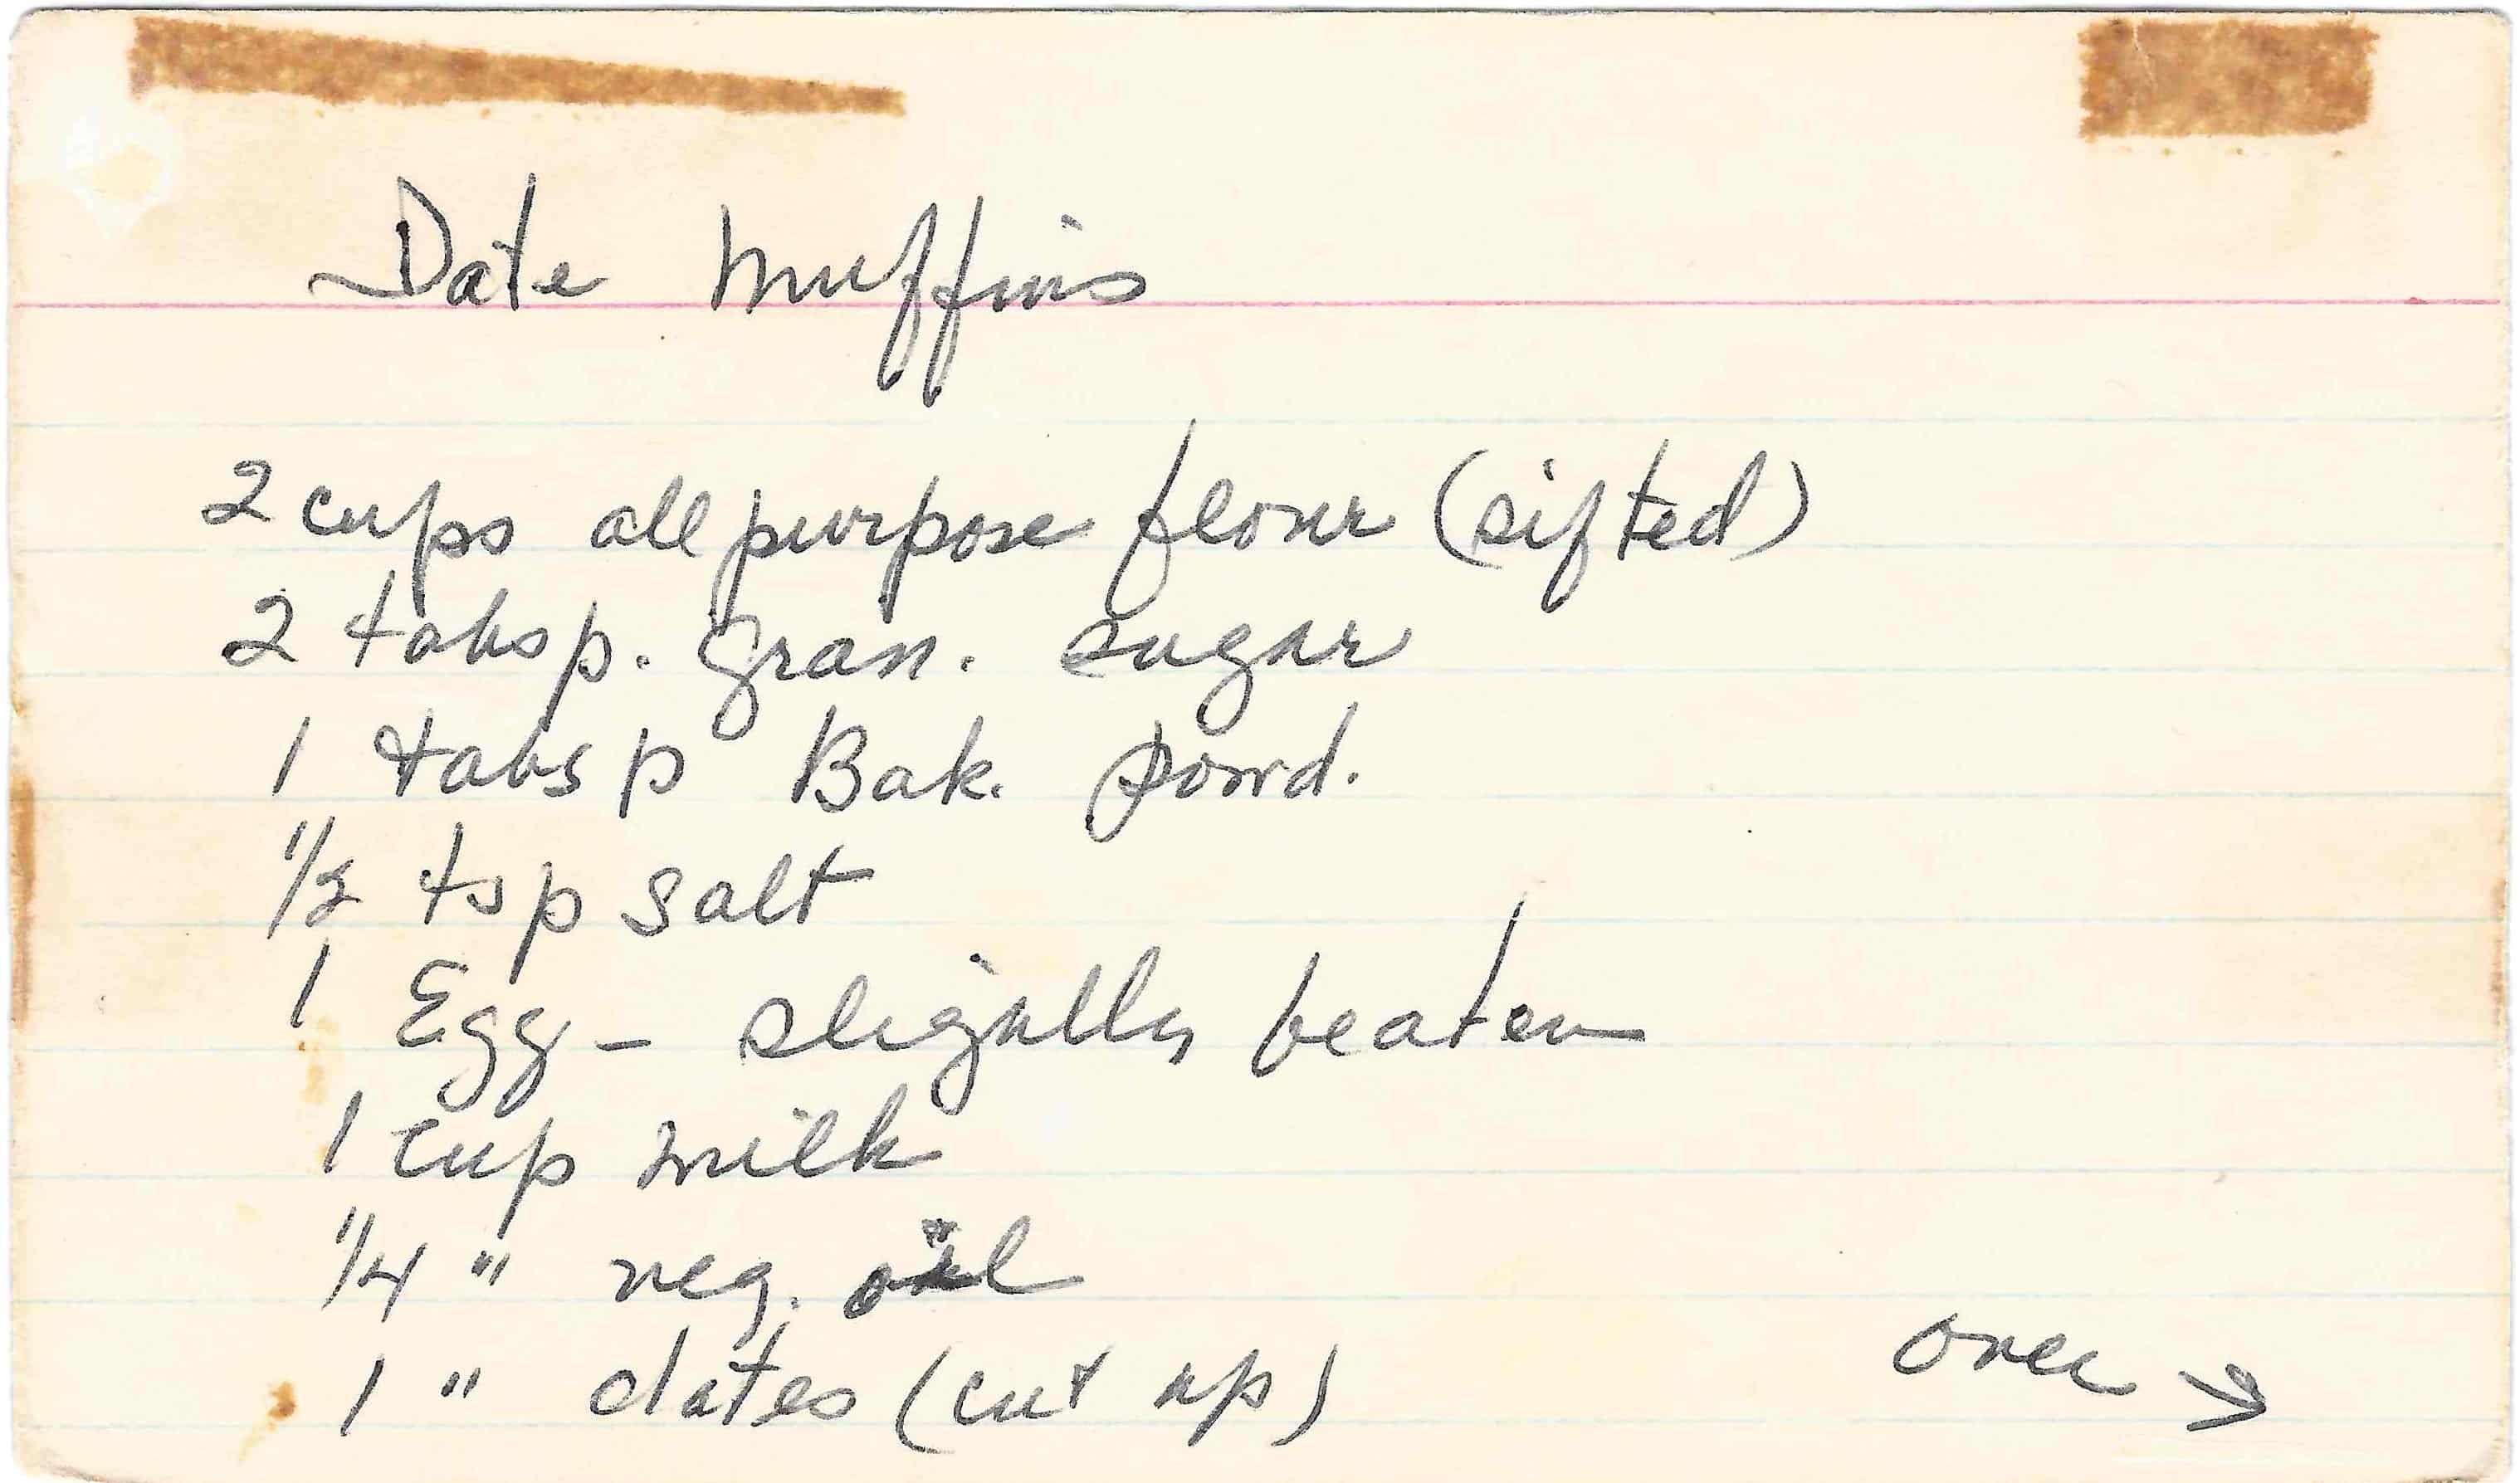 Date Muffins
2 cups all purpose flour (sifted)
2 tabsp. gran. sugar
1 tabsp Bak. Powd.
1/2 tsp salt
1 Egg - slightly beaten
1 cup milk
1/4 " veg. oil
1 " dates (cut up)
over →